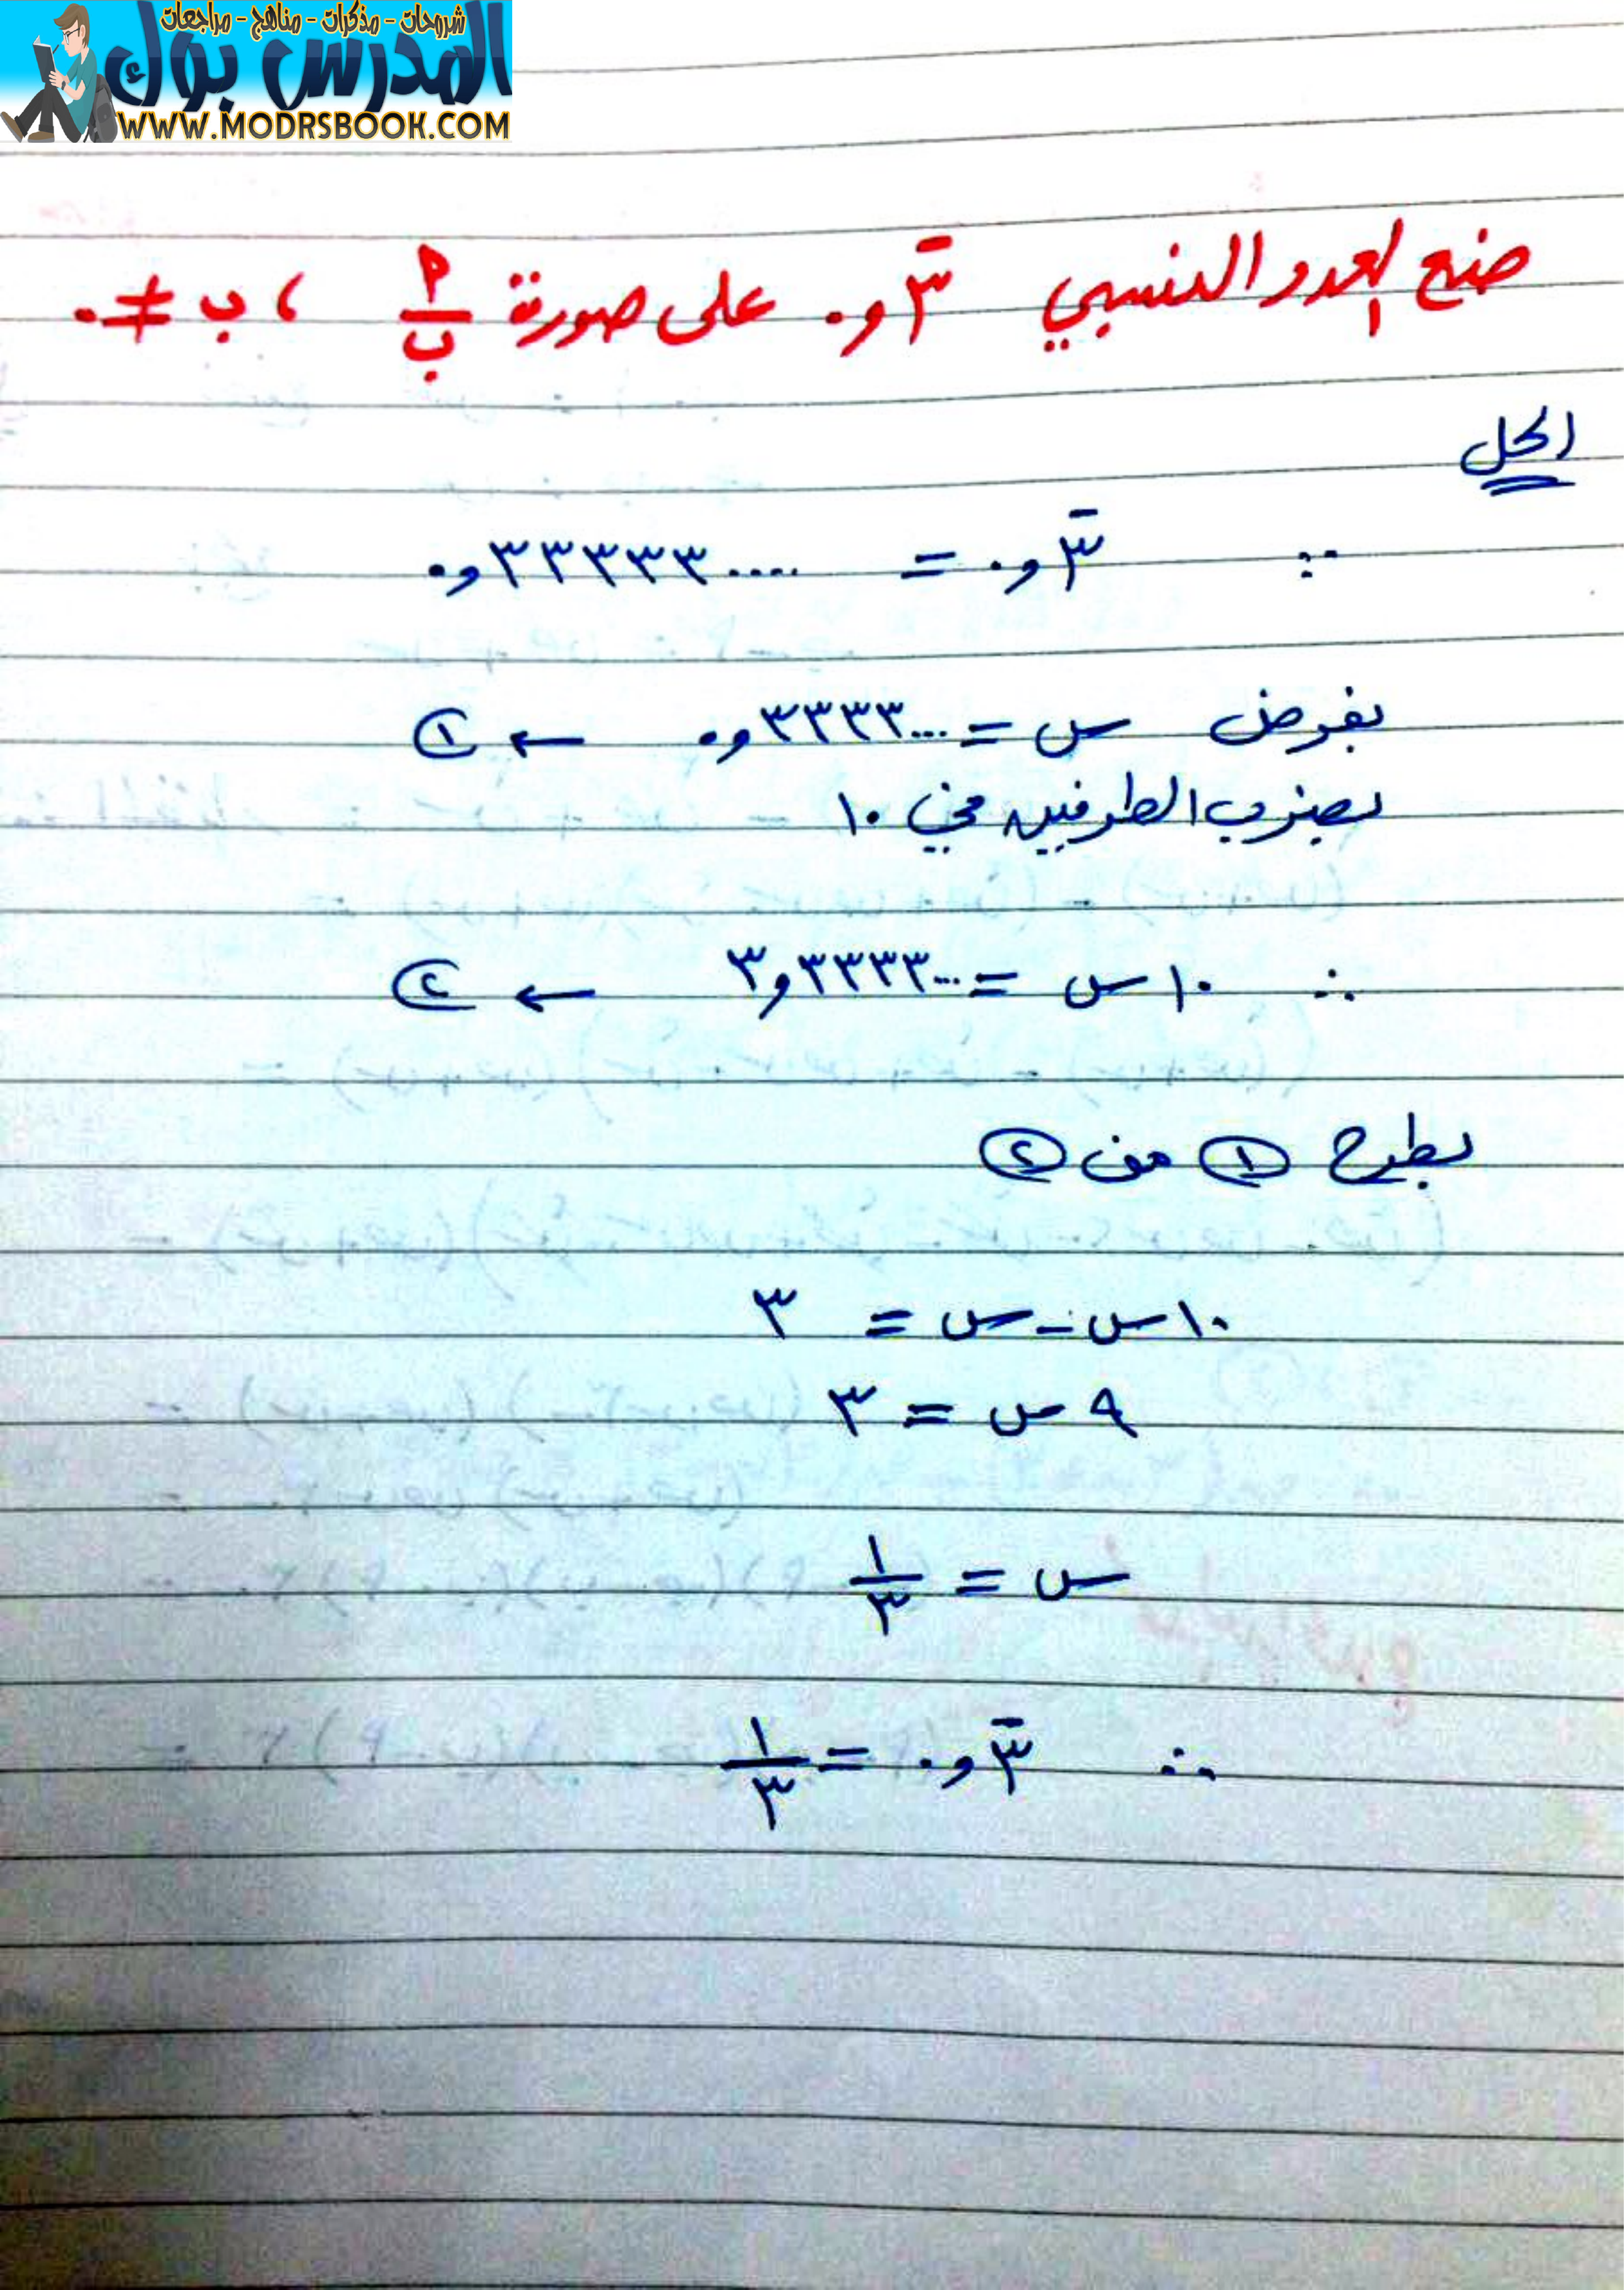 شروحات - مذكرات - مناهج - مراجعات
المدرس بوك
WWW.MODRSBOOK.COM
ضع العدد النسبي ٠٫٣̅ على صورة أ/ب ، ب ≠ ٠
الحل
∵ ٠٫٣̅ = ٠٫٣٣٣٣٣.....
بفرض س = ٠٫٣٣٣٣... ← ①
بضرب الطرفين في ١٠
∴ ١٠س = ٣٫٣٣٣٣... ← ②
بطرح ① من ②
١٠س - س = ٣
٩س = ٣
س = ١/٣
∴ ٠٫٣̅ = ١/٣